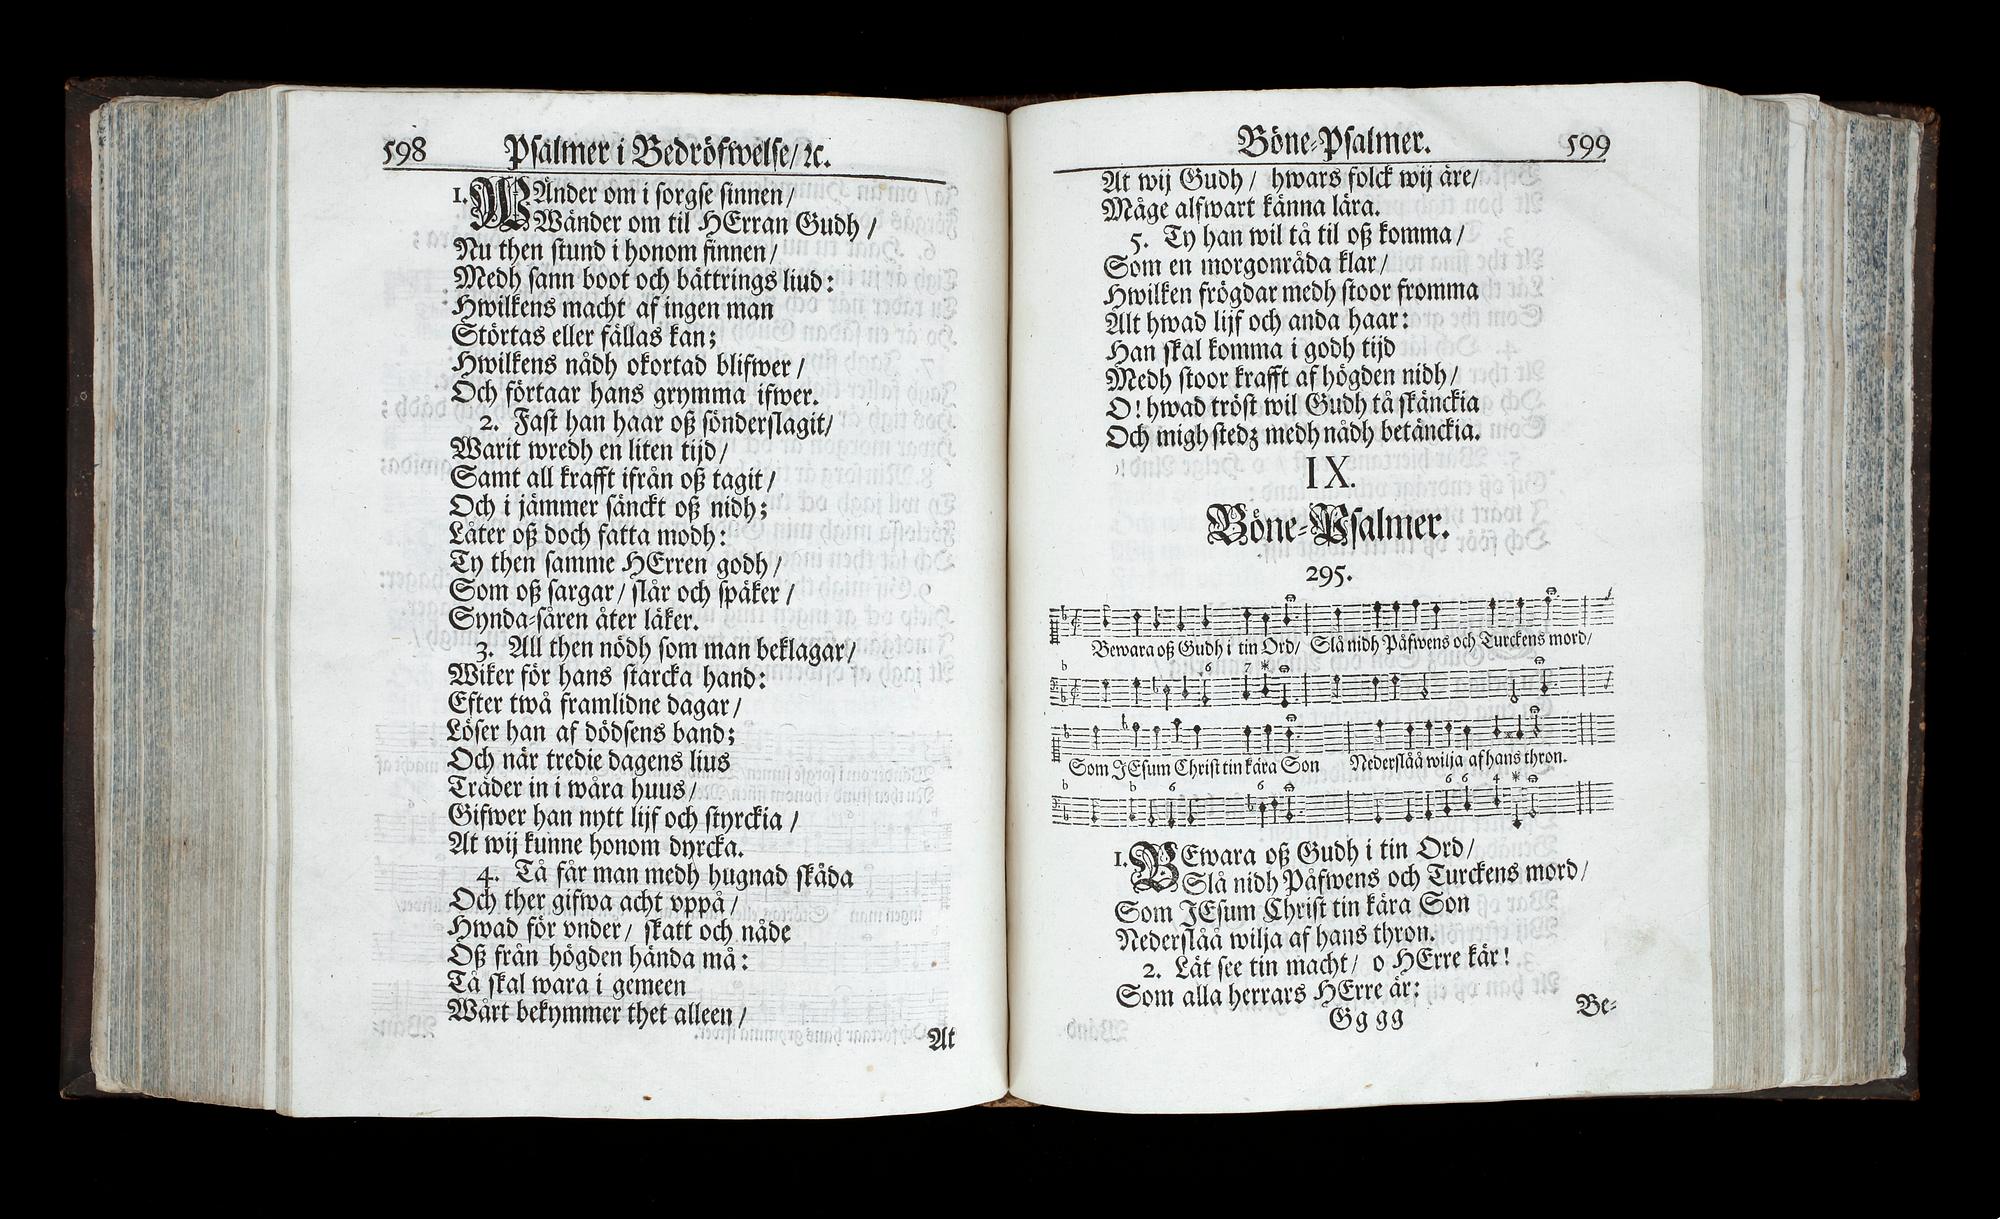 598 Psalmer i Bedröfwelse/ ꝛc.
1. WÄnder om i sorgse sinnen/
Wänder om til HErran Gudh/
Nu then stund i honom finnen/
Medh sann boot och bättrings liud:
Hwilkens macht af ingen man
Störtas eller fällas kan;
Hwilkens nådh okortad blifwer/
Och förtaar hans grymma ifwer.
2. Fast han haar oß sönderslagit/
Warit wredh en liten tijd/
Samt all krafft ifrån oß tagit/
Och i jämmer sänckt oß nidh;
Låter oß doch fatta modh:
Ty then samme HErren godh/
Som oß sargar/ slår och späker/
Synda-såren åter läker.
3. All then nödh som man beklagar/
Wiker för hans starcka hand:
Efter twå framlidne dagar/
Löser han af dödsens band;
Och när tredie dagens lius
Träder in i wåra huus/
Gifwer han nytt lijf och styrckia/
At wij kunne honom dyrcka.
4. Tå får man medh hugnad skåda
Och ther gifwa acht vppå/
Hwad för vnder/ skatt och nåde
Oß från högden hända må:
Tå skal wara i gemeen
Wårt bekymmer thet alleen/
At
Böne-Psalmer. 599
At wij Gudh/ hwars folck wij äre/
Måge alfwart känna lära.
5. Ty han wil tå til oß komma/
Som en morgonråda klar/
Hwilken frögdar medh stoor fromma
Alt hwad lijf och anda haar:
Han skal komma i godh tijd
Medh stoor krafft af högden nidh/
O! hwad tröst wil Gudh tå skänckia
Och migh stedz medh nådh betänckia.
IX.
Böne-Psalmer.
295.
Bewara oß Gudh i tin Ord/ Slå nidh Påfwens och Turckens mord/
b 6 7 *
Som JEsum Christ tin kära Son Nederslåå wilja af hans thron.
b b 6 6 6 6 4 *
1. BEwara oß Gudh i tin Ord/
Slå nidh Påfwens och Turckens mord/
Som JEsum Christ tin kära Son
Nederslåå wilja af hans thron.
2. Låt see tin macht/ o HErre kär!
Som alla herrars HErre är:
Gg gg Be-